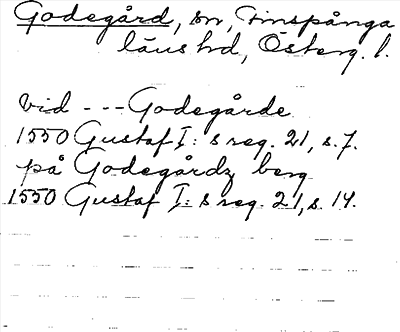 Godegård, sn, Finspånga
läns hd, Österg. l.
vid --- Godegårde
1550 Gustaf I:s reg. 21, s. 7.
på Godegårdz berg
1550 Gustaf I:s reg. 21, s. 14.